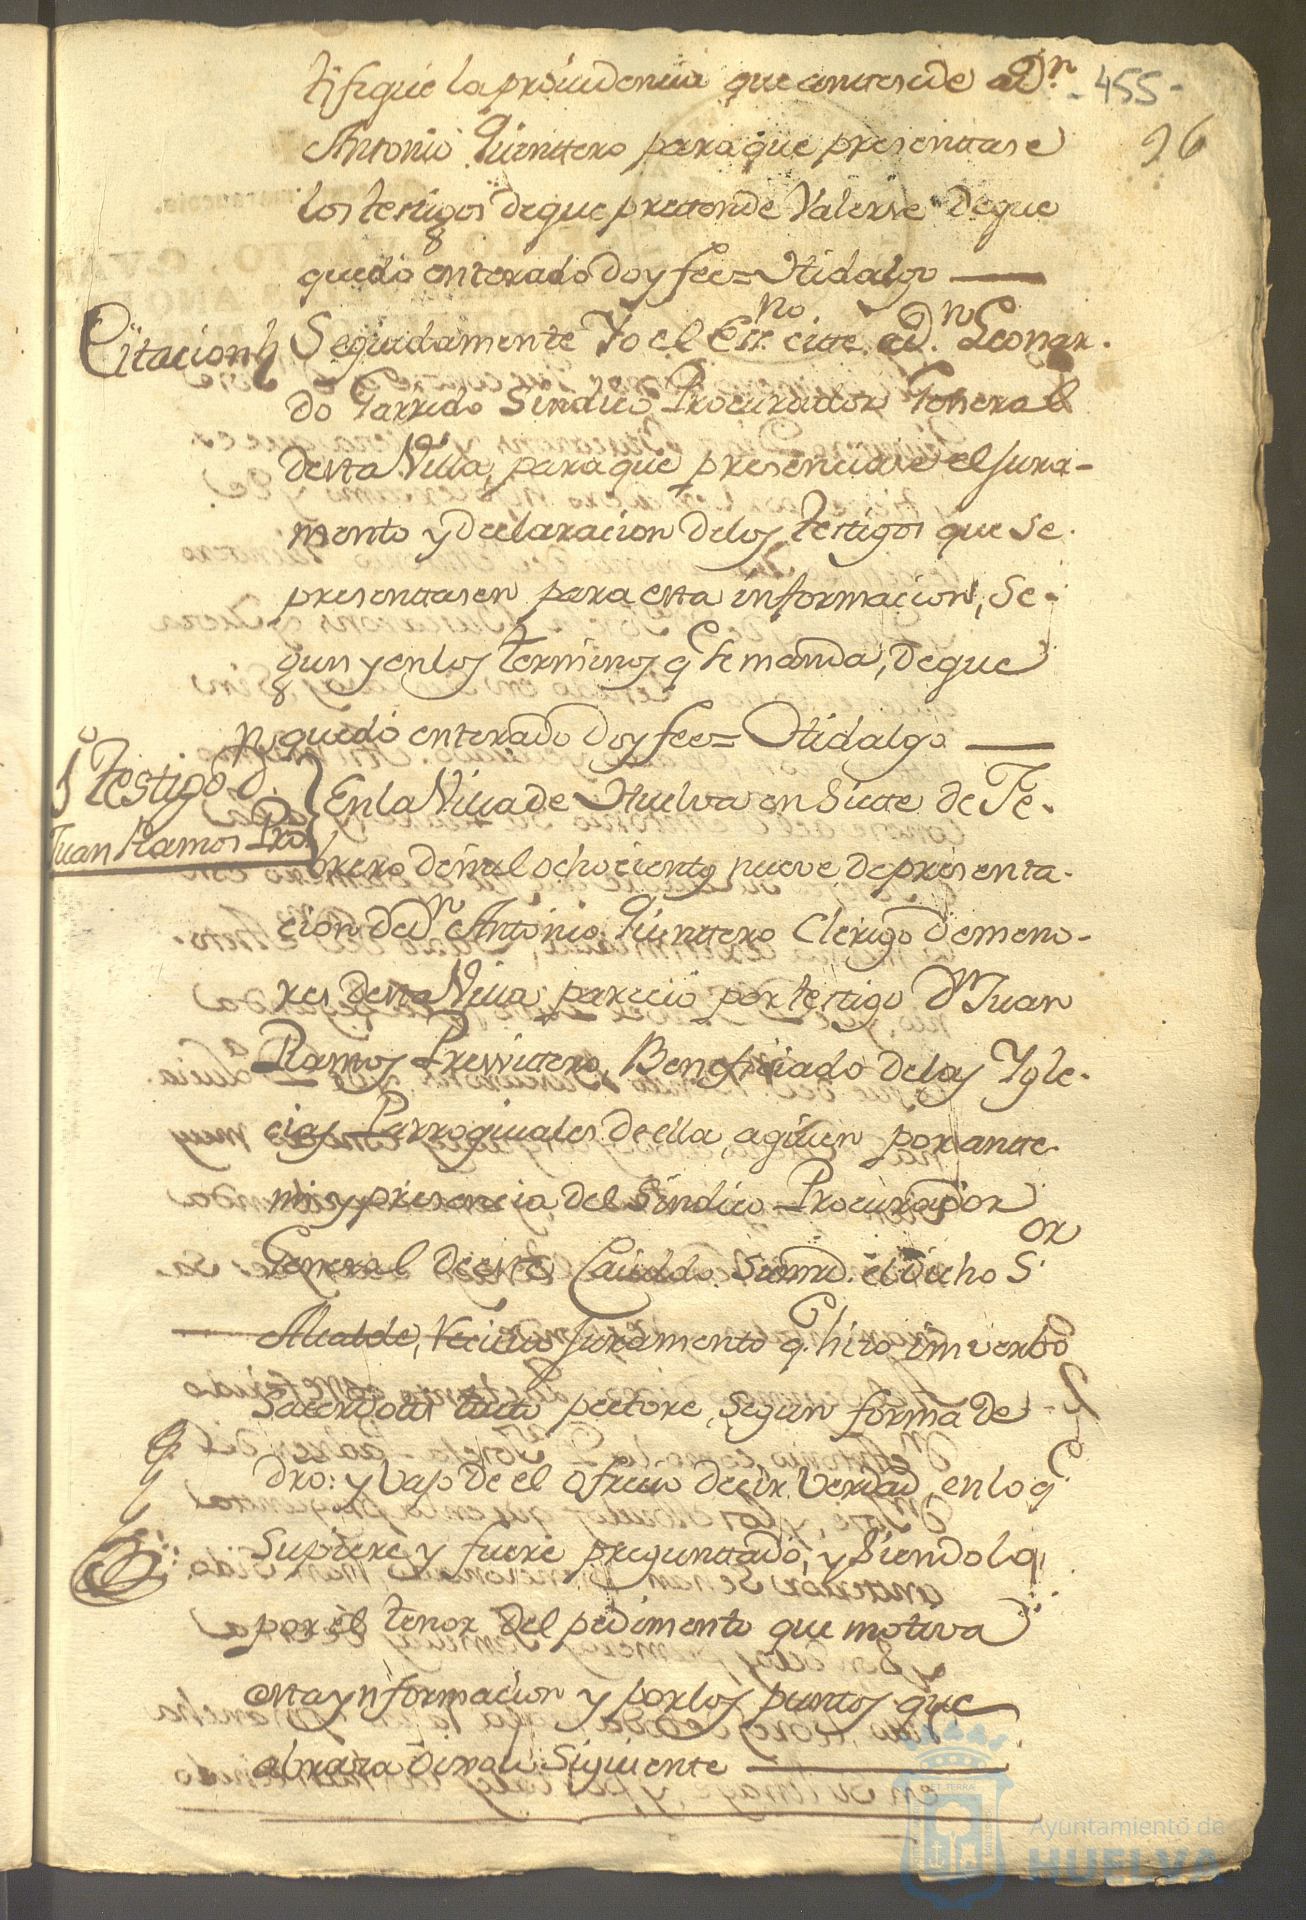 -455-
96
tifiqué la providencia que antesede a Dn.
Antonio Quinttero para que presenttase
los testigos de que prettende Valerse de que
quedó enterado doy fee = Hidalgo
Citacion
Seguidamente Yo el Essno. citte a Dn. Leonar-
do Garrido Sindico Procurador General
desta Villa, para que presenciase el Jura-
mento y declaracion delos testigos que se
presenttasen para esta informacion, se-
gun y en los terminos q. se manda, de que
quedó enterado doy fee = Hidalgo
1º Testigo d.
Juan Ramos Pro.
En la Villa de Huelva en Siette de Fe-
brero de mil ochocientos nueve de presenta-
cion de Dn. Antonio Quinttero Clerigo de meno-
res desta Villa, parecio por testigo Dn. Juan
Ramos Presvittero, Beneficiado delas Ygle-
cias Parroquiales de ella, a quien por antte
mi y presencia del Sindico Procurador
General de este Cavildo Sumd. el dicho Sor
Alcalde, recivio Juramento q. hizo in verbo
Sacerdotis tacto pectore, segun forma de
dro: y vajo de el ofrecio decir verdad, en lo q.
Supiere y fuere preguntado, y siendolo
por el tenor del pedimento que motiva
esta ynformacion y por los puntos que
abraza Dixo lo Siguiente
Ayuntamiento de
HUELVA